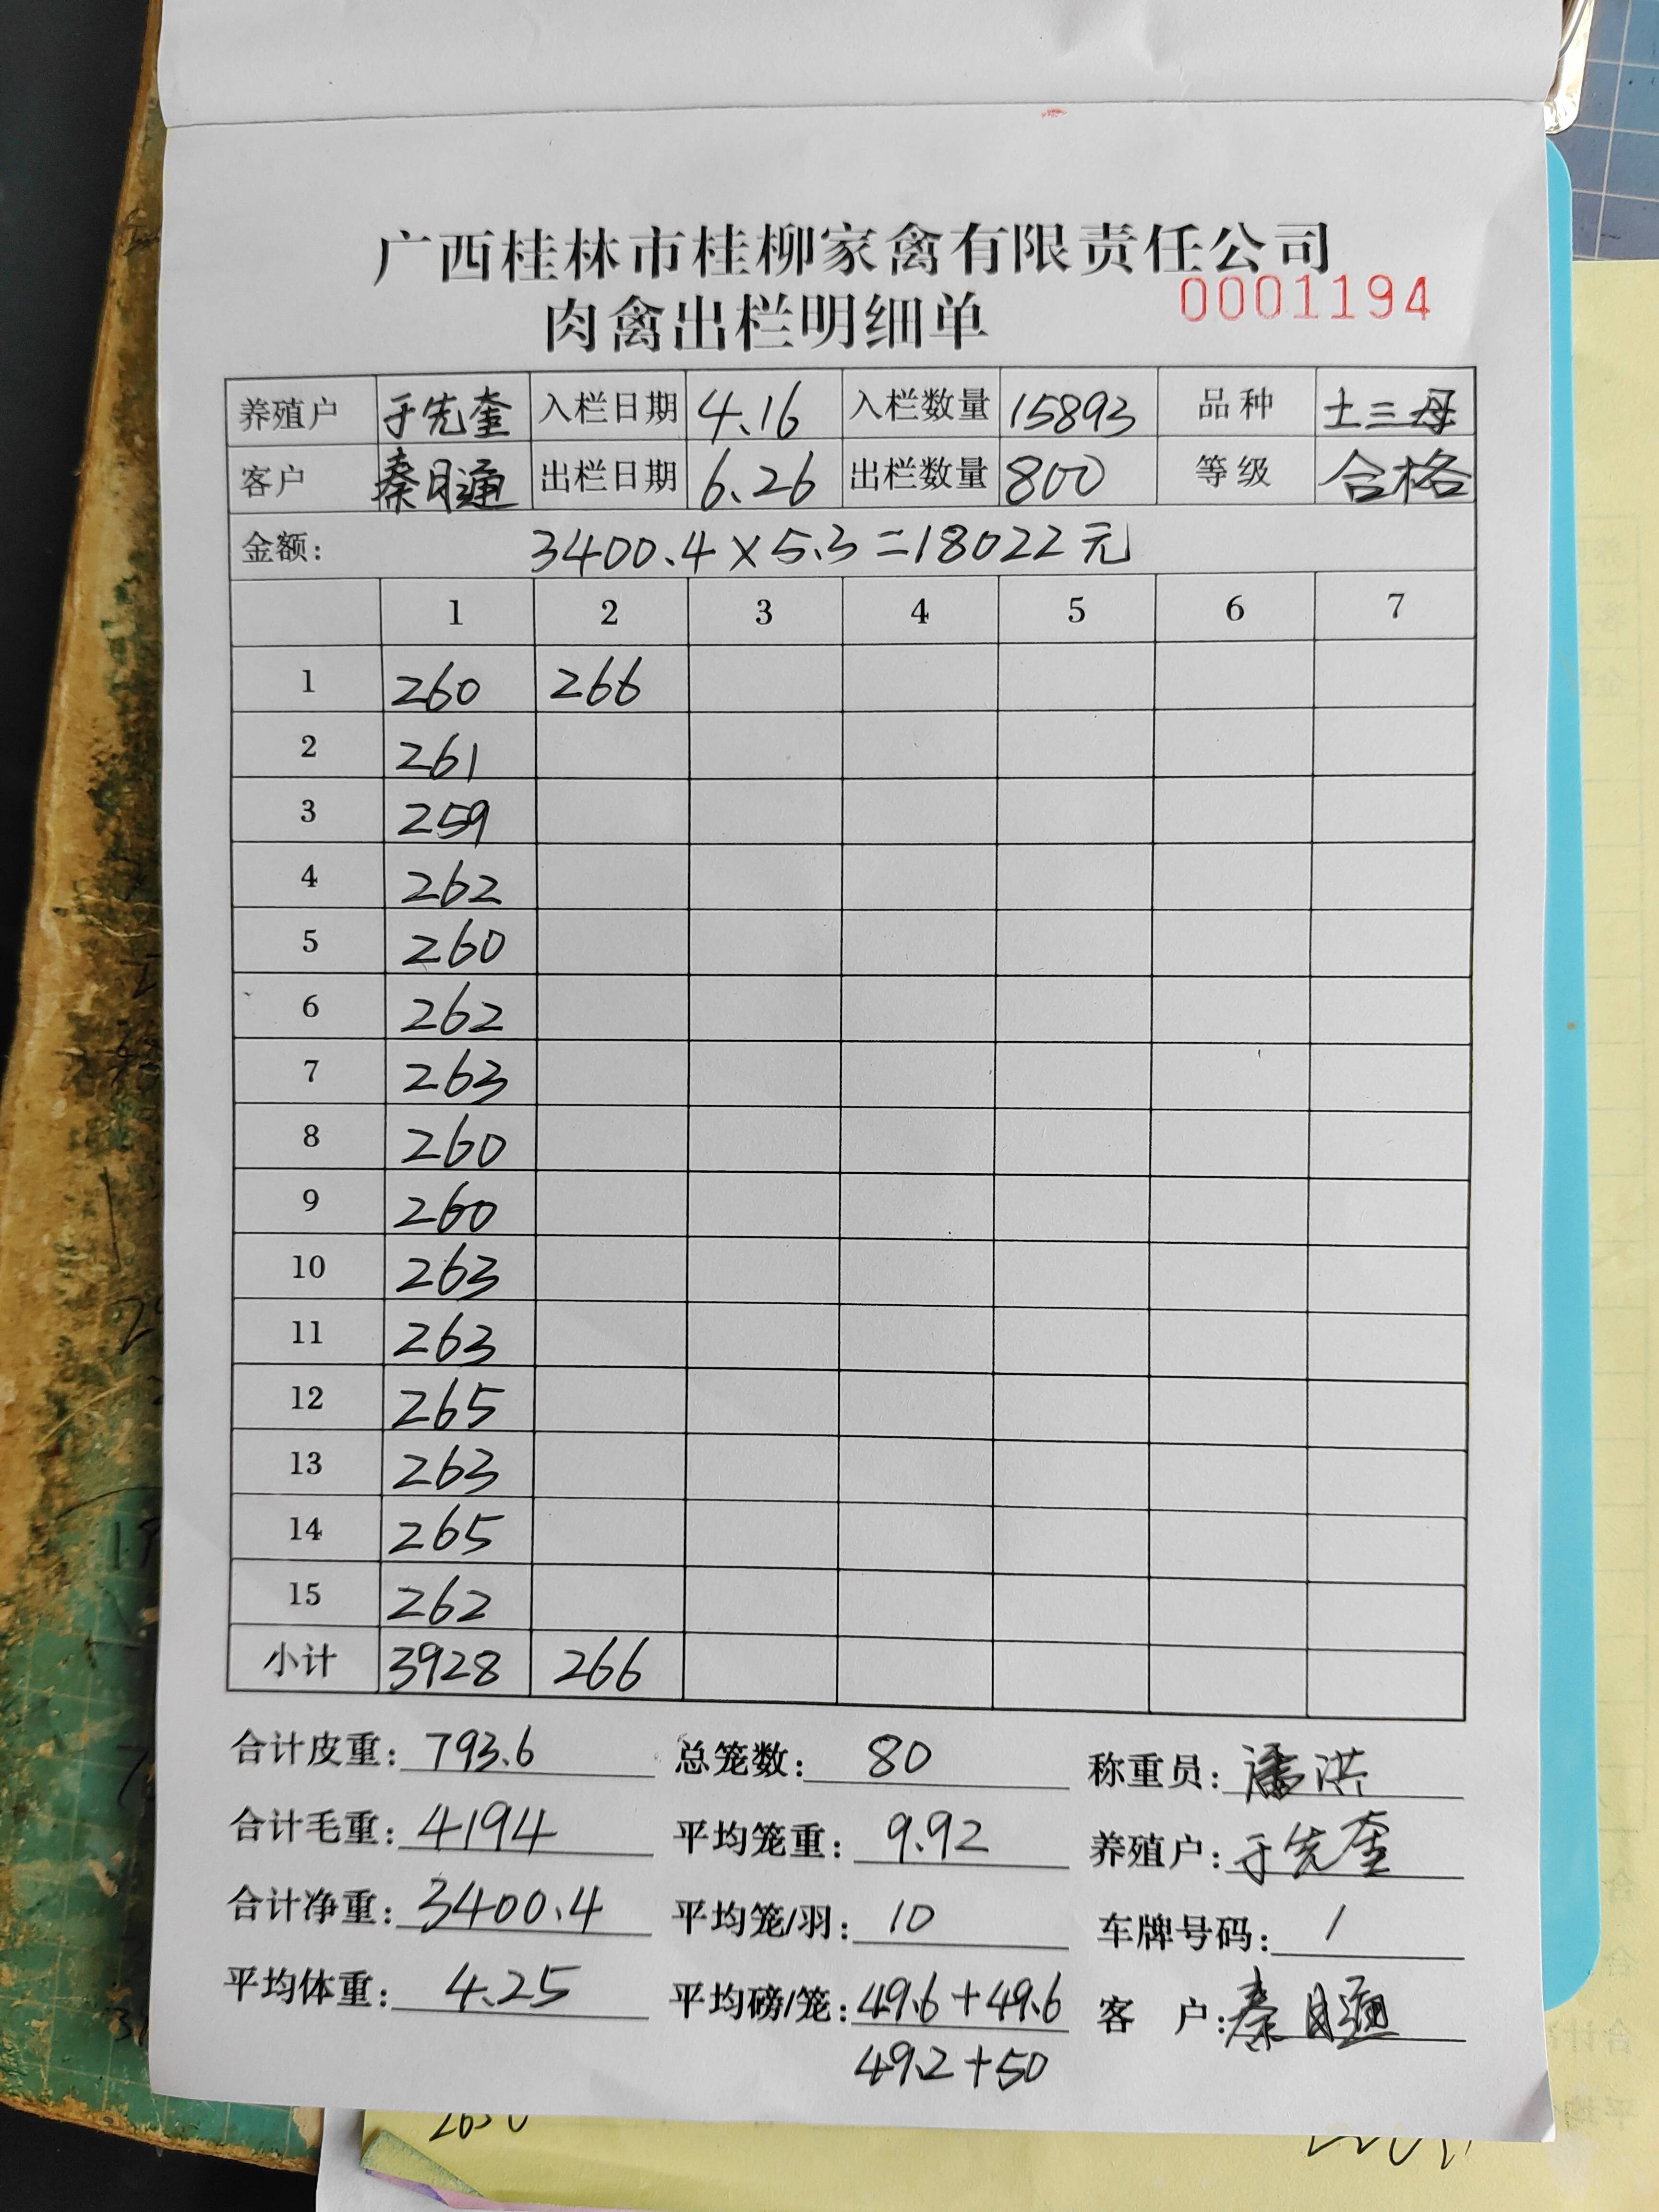 广西桂林市桂柳家禽有限责任公司
肉禽出栏明细单 0001194
养殖户 于先奎 入栏日期 4.16 入栏数量 15893 品种 土三母
客户 秦月通 出栏日期 6.26 出栏数量 800 等级 合格
金额: 3400.4×5.3=18022元
1 2 3 4 5 6 7
1 260 266
2 261
3 259
4 262
5 260
6 262
7 263
8 260
9 260
10 263
11 263
12 265
13 263
14 265
15 262
小计 3928 266
合计皮重: 793.6 总笼数: 80 称重员: 潘洪
合计毛重: 4194 平均笼重: 9.92 养殖户: 于先奎
合计净重: 3400.4 平均笼/羽: 10 车牌号码: /
平均体重: 4.25 平均磅/笼: 49.6+49.6 客 户: 秦月通
49.2+50